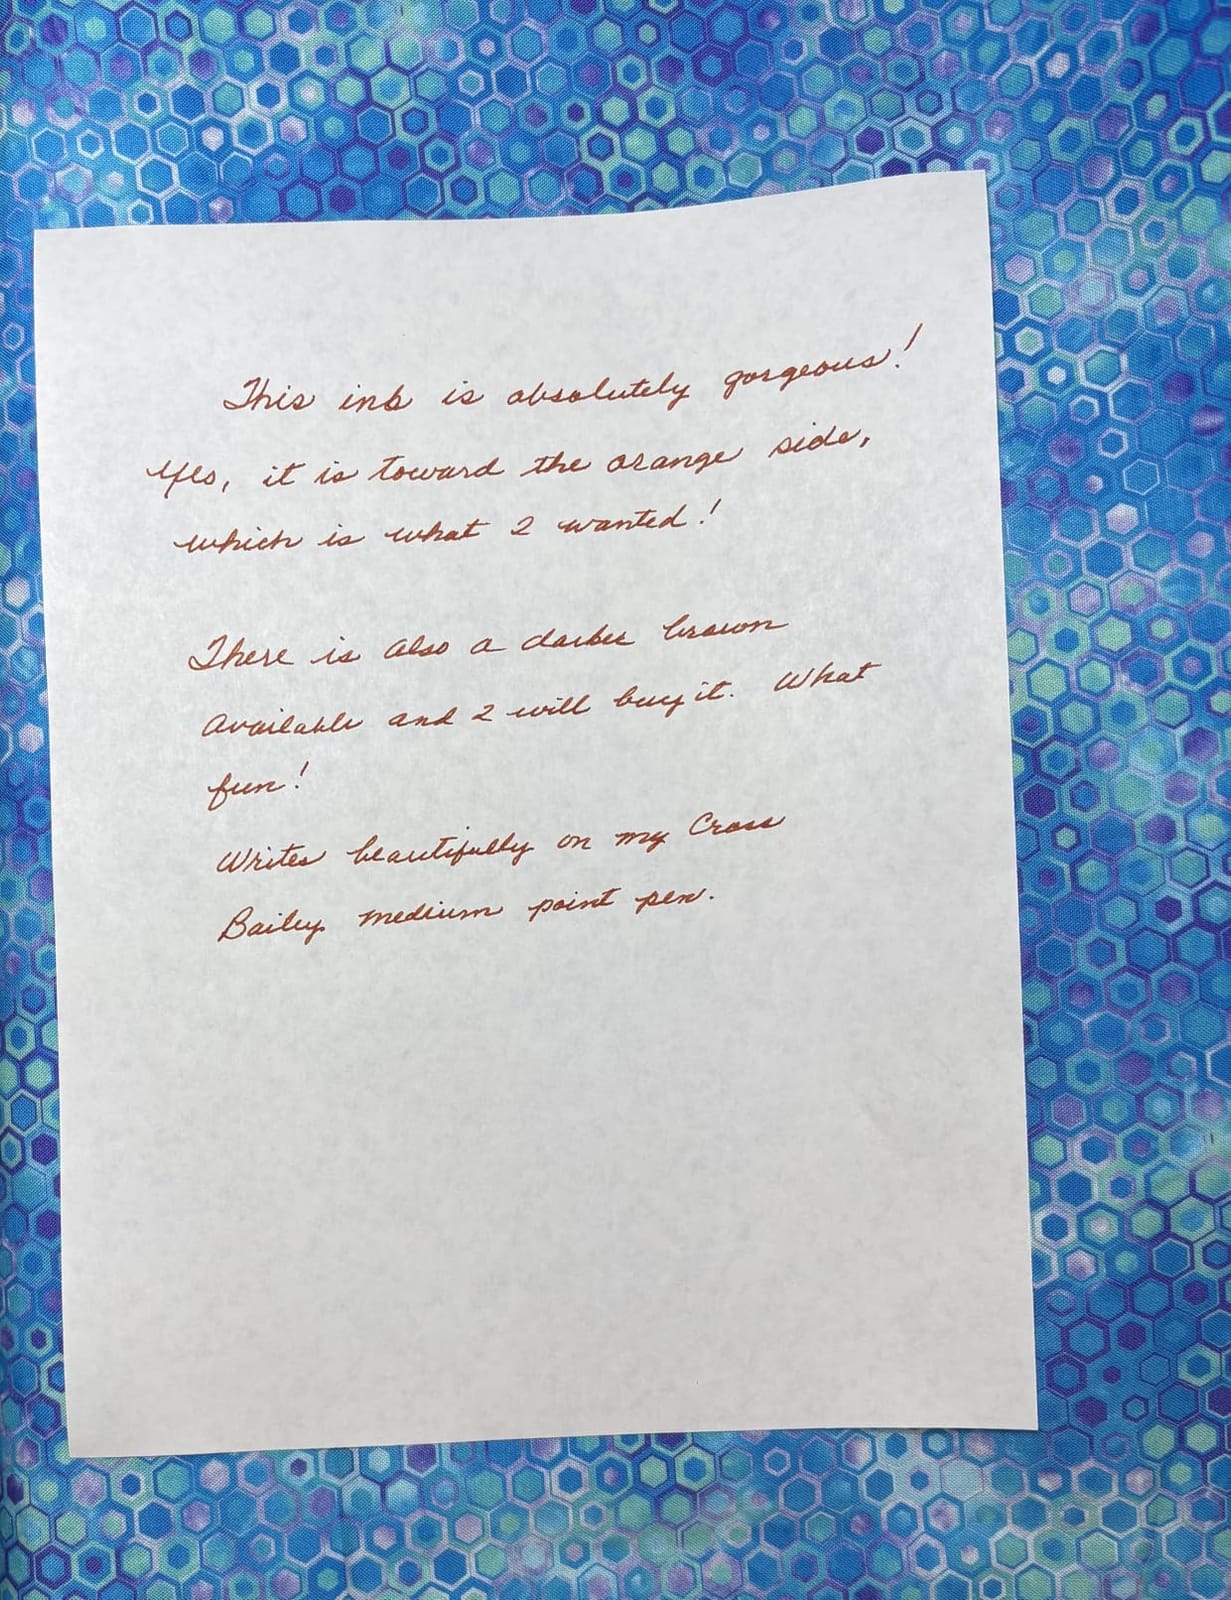 This ink is absolutely gorgeous!
Yes, it is toward the orange side,
which is what I wanted!
There is also a darker brown
available and I will buy it. What
fun!
Writes beautifully on my Cross
Bailey medium point pen.